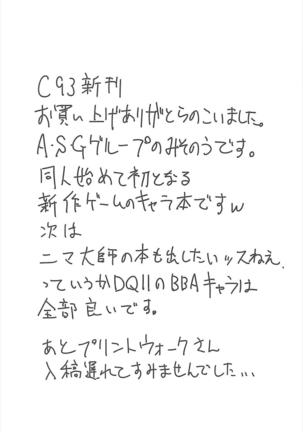 C93新刊
お買い上げありがとらのこいました。
A・S・Gグループのみそのうです。
同人始めて初となる
新作ゲームのキャラ本ですw
次は
ニマ大師の本も出したいッスねえ。
っていうかDQ11のBBAキャラは
全部良いです。
あとプリントウォークさん
入稿遅れてすみませんでした…